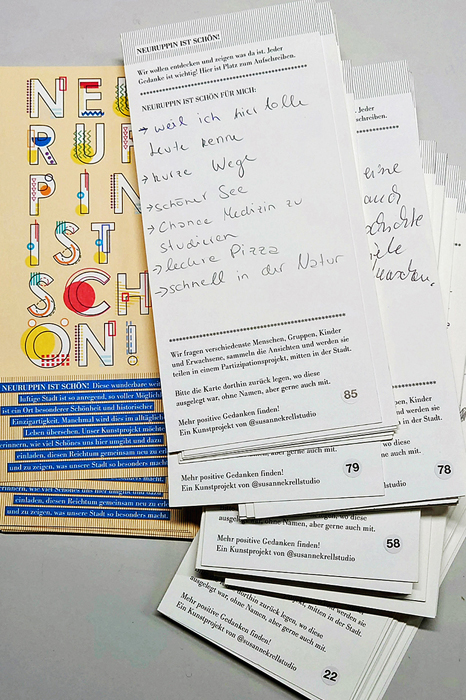 NEU
RUP
PIN
IST
SCH
ÖN!
NEURUPPIN IST SCHÖN! Diese wunderbare
luftige Stadt ist so anregend, so voller
ist ein Ort besonderer Schönheit und historischer
Einzigartigkeit. Manchmal wird dies im
Leben übersehen. Unser Kunstprojekt
erinnern, wie viel Schönes uns hier umgibt und
einladen, diesen Reichtum gemeinsam neu zu
und zu zeigen, was unsere Stadt so besonders macht.
erinnern, wie viel Schönes uns hier umgibt und
einladen, diesen Reichtum gemeinsam neu zu
und zu zeigen, was unsere Stadt so besonders macht.
NEURUPPIN IST SCHÖN!
Wir wollen entdecken und zeigen was da ist. Jeder
Gedanke ist wichtig! Hier ist Platz zum Aufschreiben.
NEURUPPIN IST SCHÖN FÜR MICH:
→ weil ich hier tolle
Leute kenne
→ kurze Wege
→ schöner See
→ Chance Medizin zu
studieren
→ leckere Pizza
→ schnell in der Natur
Wir fragen verschiedenste Menschen, Gruppen, Kinder
und Erwachsene, sammeln die Ansichten und werden sie
teilen in einem Partizipationsprojekt, mitten in der Stadt.
Bitte die Karte dorthin zurück legen, wo diese
ausgelegt war, ohne Namen, aber gerne auch mit.
Mehr positive Gedanken finden!
Ein Kunstprojekt von @susannekrellstudio
85
Jeder
schreiben.
eine
auch
Kinder
werden sie
der Stadt.
diese
auch mit.
78
Mehr positive Gedanken finden!
Ein Kunstprojekt von @susannekrellstudio
79
ausgelegt war, ohne Namen, aber gerne auch mit.
Mehr positive Gedanken finden!
Ein Kunstprojekt von @susannekrellstudio
58
dorthin zurück legen, wo diese
ausgelegt war, ohne Namen, aber gerne auch mit.
Mehr positive Gedanken finden!
Ein Kunstprojekt von @susannekrellstudio
22